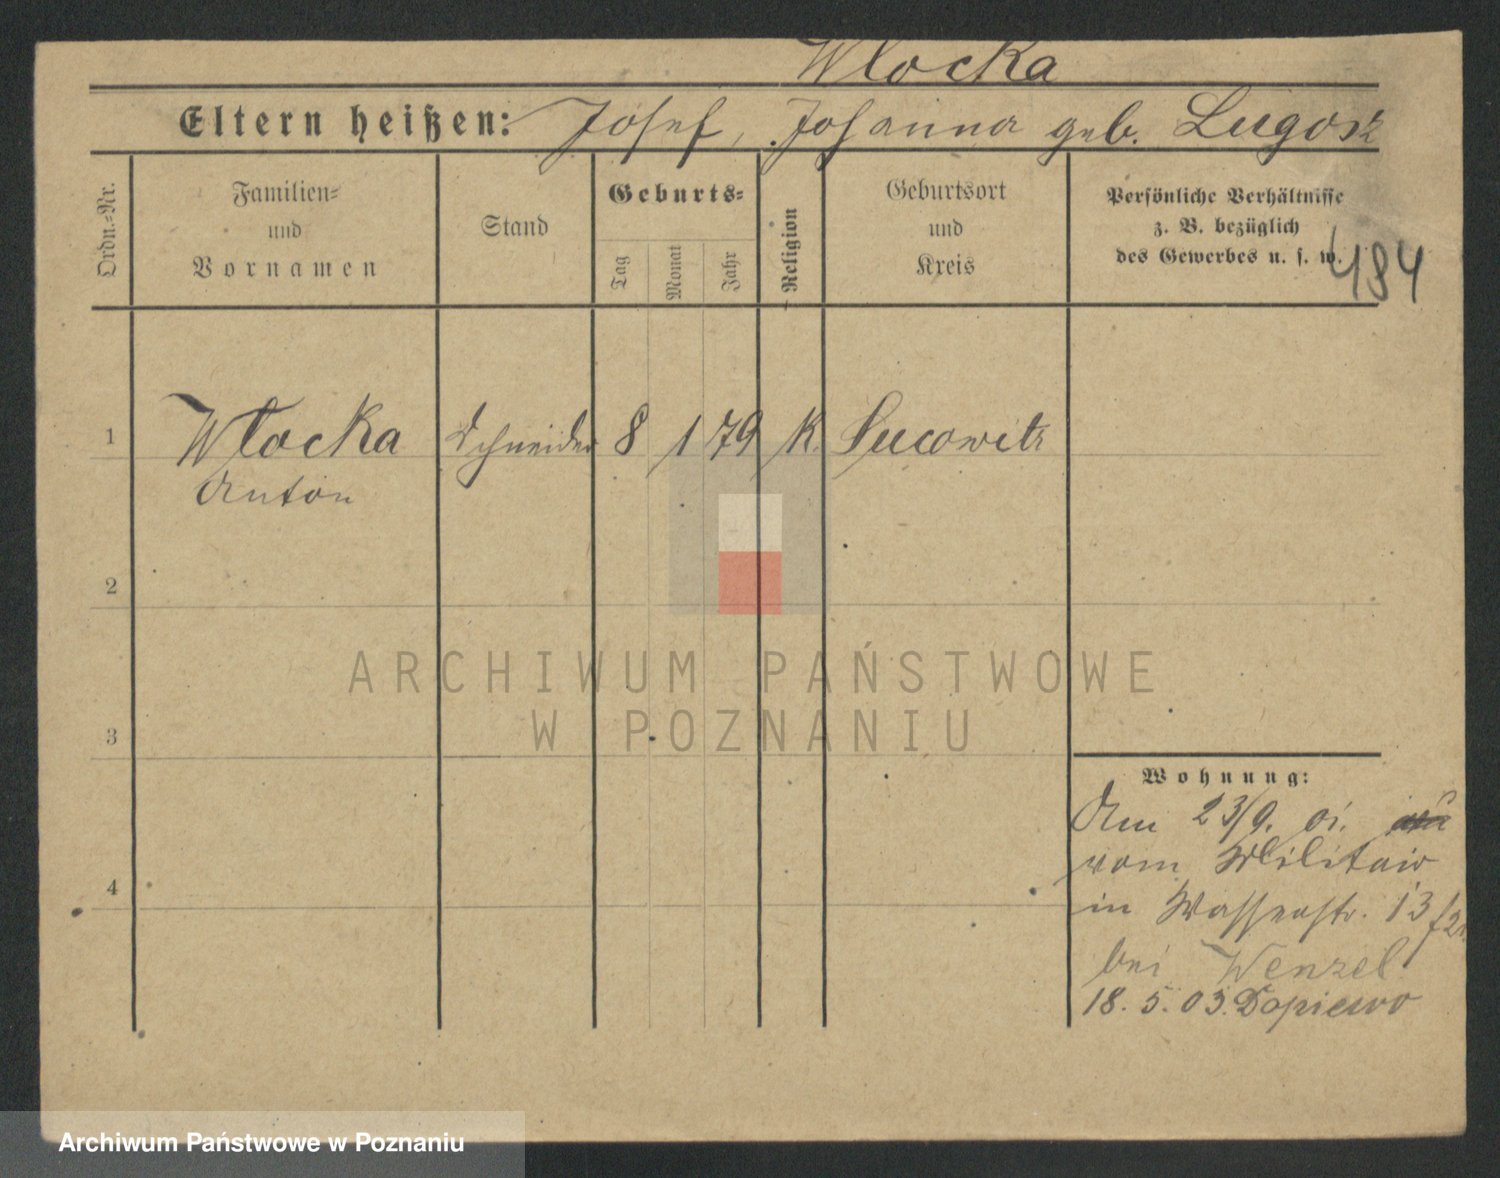 Wlocka
Eltern heißen: Josef, Johanna geb. Lugosz
Ordn.=Nr.
Familien=
und
Vornamen
Stand
Geburts=
Tag
Monat
Jahr
Religion
Geburtsort
und
Kreis
Persönliche Verhältnisse
z. B. bezüglich
des Gewerbes u. s. w.
484
1 Wlocka Schneider 8 1 79 K. Lucowitz
Anton
2
ARCHIWUM PAŃSTWOWE
W POZNANIU
3
Wohnung:
Am 23/9. 01.
vom Militair
4
in Wasserstr. 13
bei Wenzel
18. 5. 03. Dopiewo
Archiwum Państwowe w Poznaniu